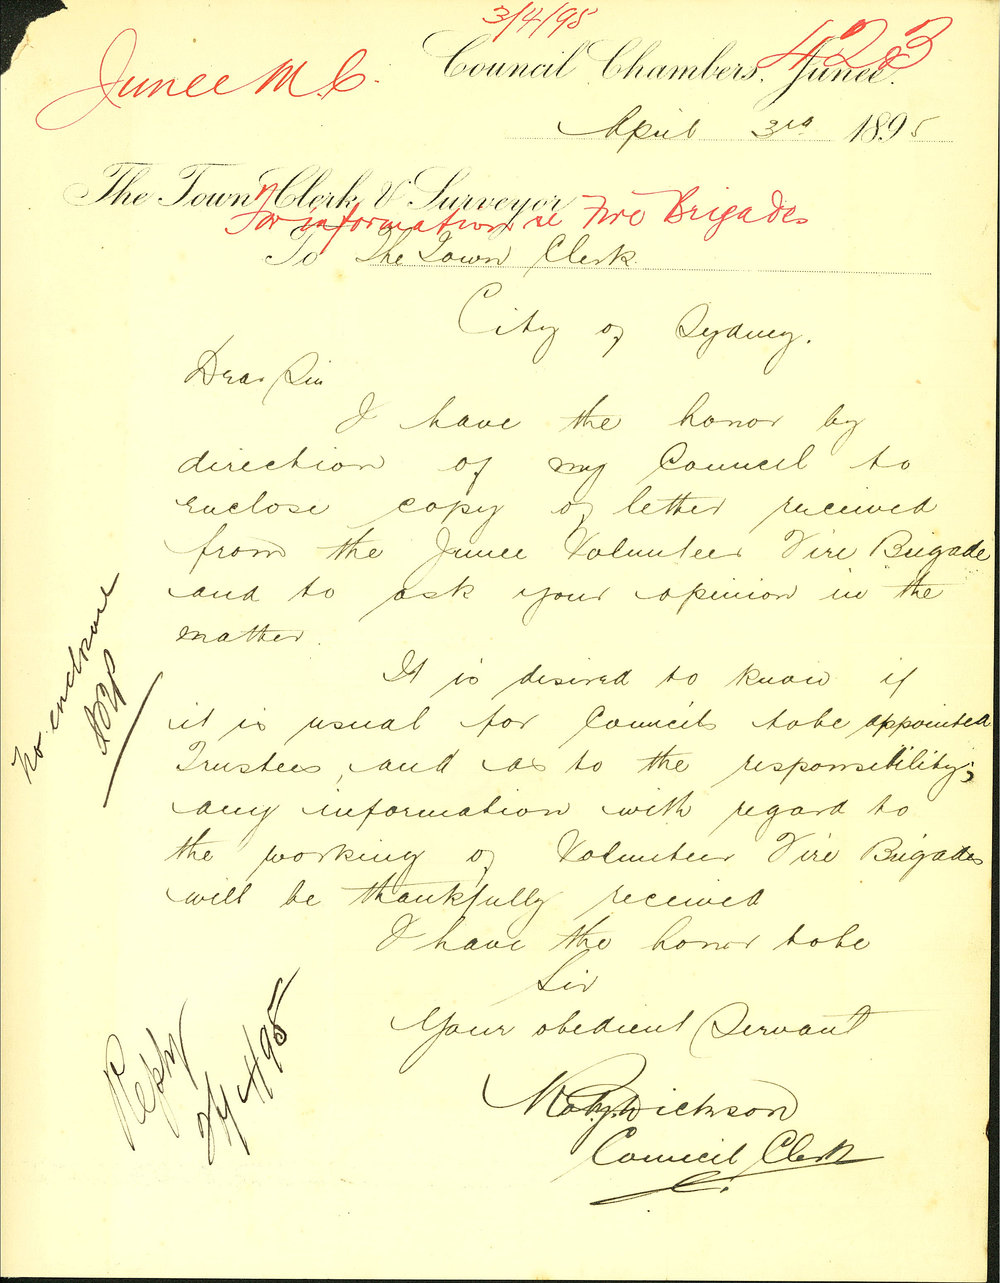 3/4/95
423
Junee M.C.
Council Chambers, Junee.
April 3rd 1895
The Town Clerk & Surveyor
For information re Fire Brigades
To The Town Clerk
City of Sydney.
Dear Sir
I have the honor by
direction of my Council to
enclose copy of letter received
from the Junee Volunteer Fire Brigade
and to ask your opinion in the
matter.
It is desired to know if
it is usual for Councils to be appointed
Trustees, and as to the responsibility;
any information with regard to
the working of Volunteer Fire Brigades
will be thankfully received
I have the honor to be
Sir
Your obedient Servant
Dickson
Council Clerk
No enclosure
Reply
24/4/95